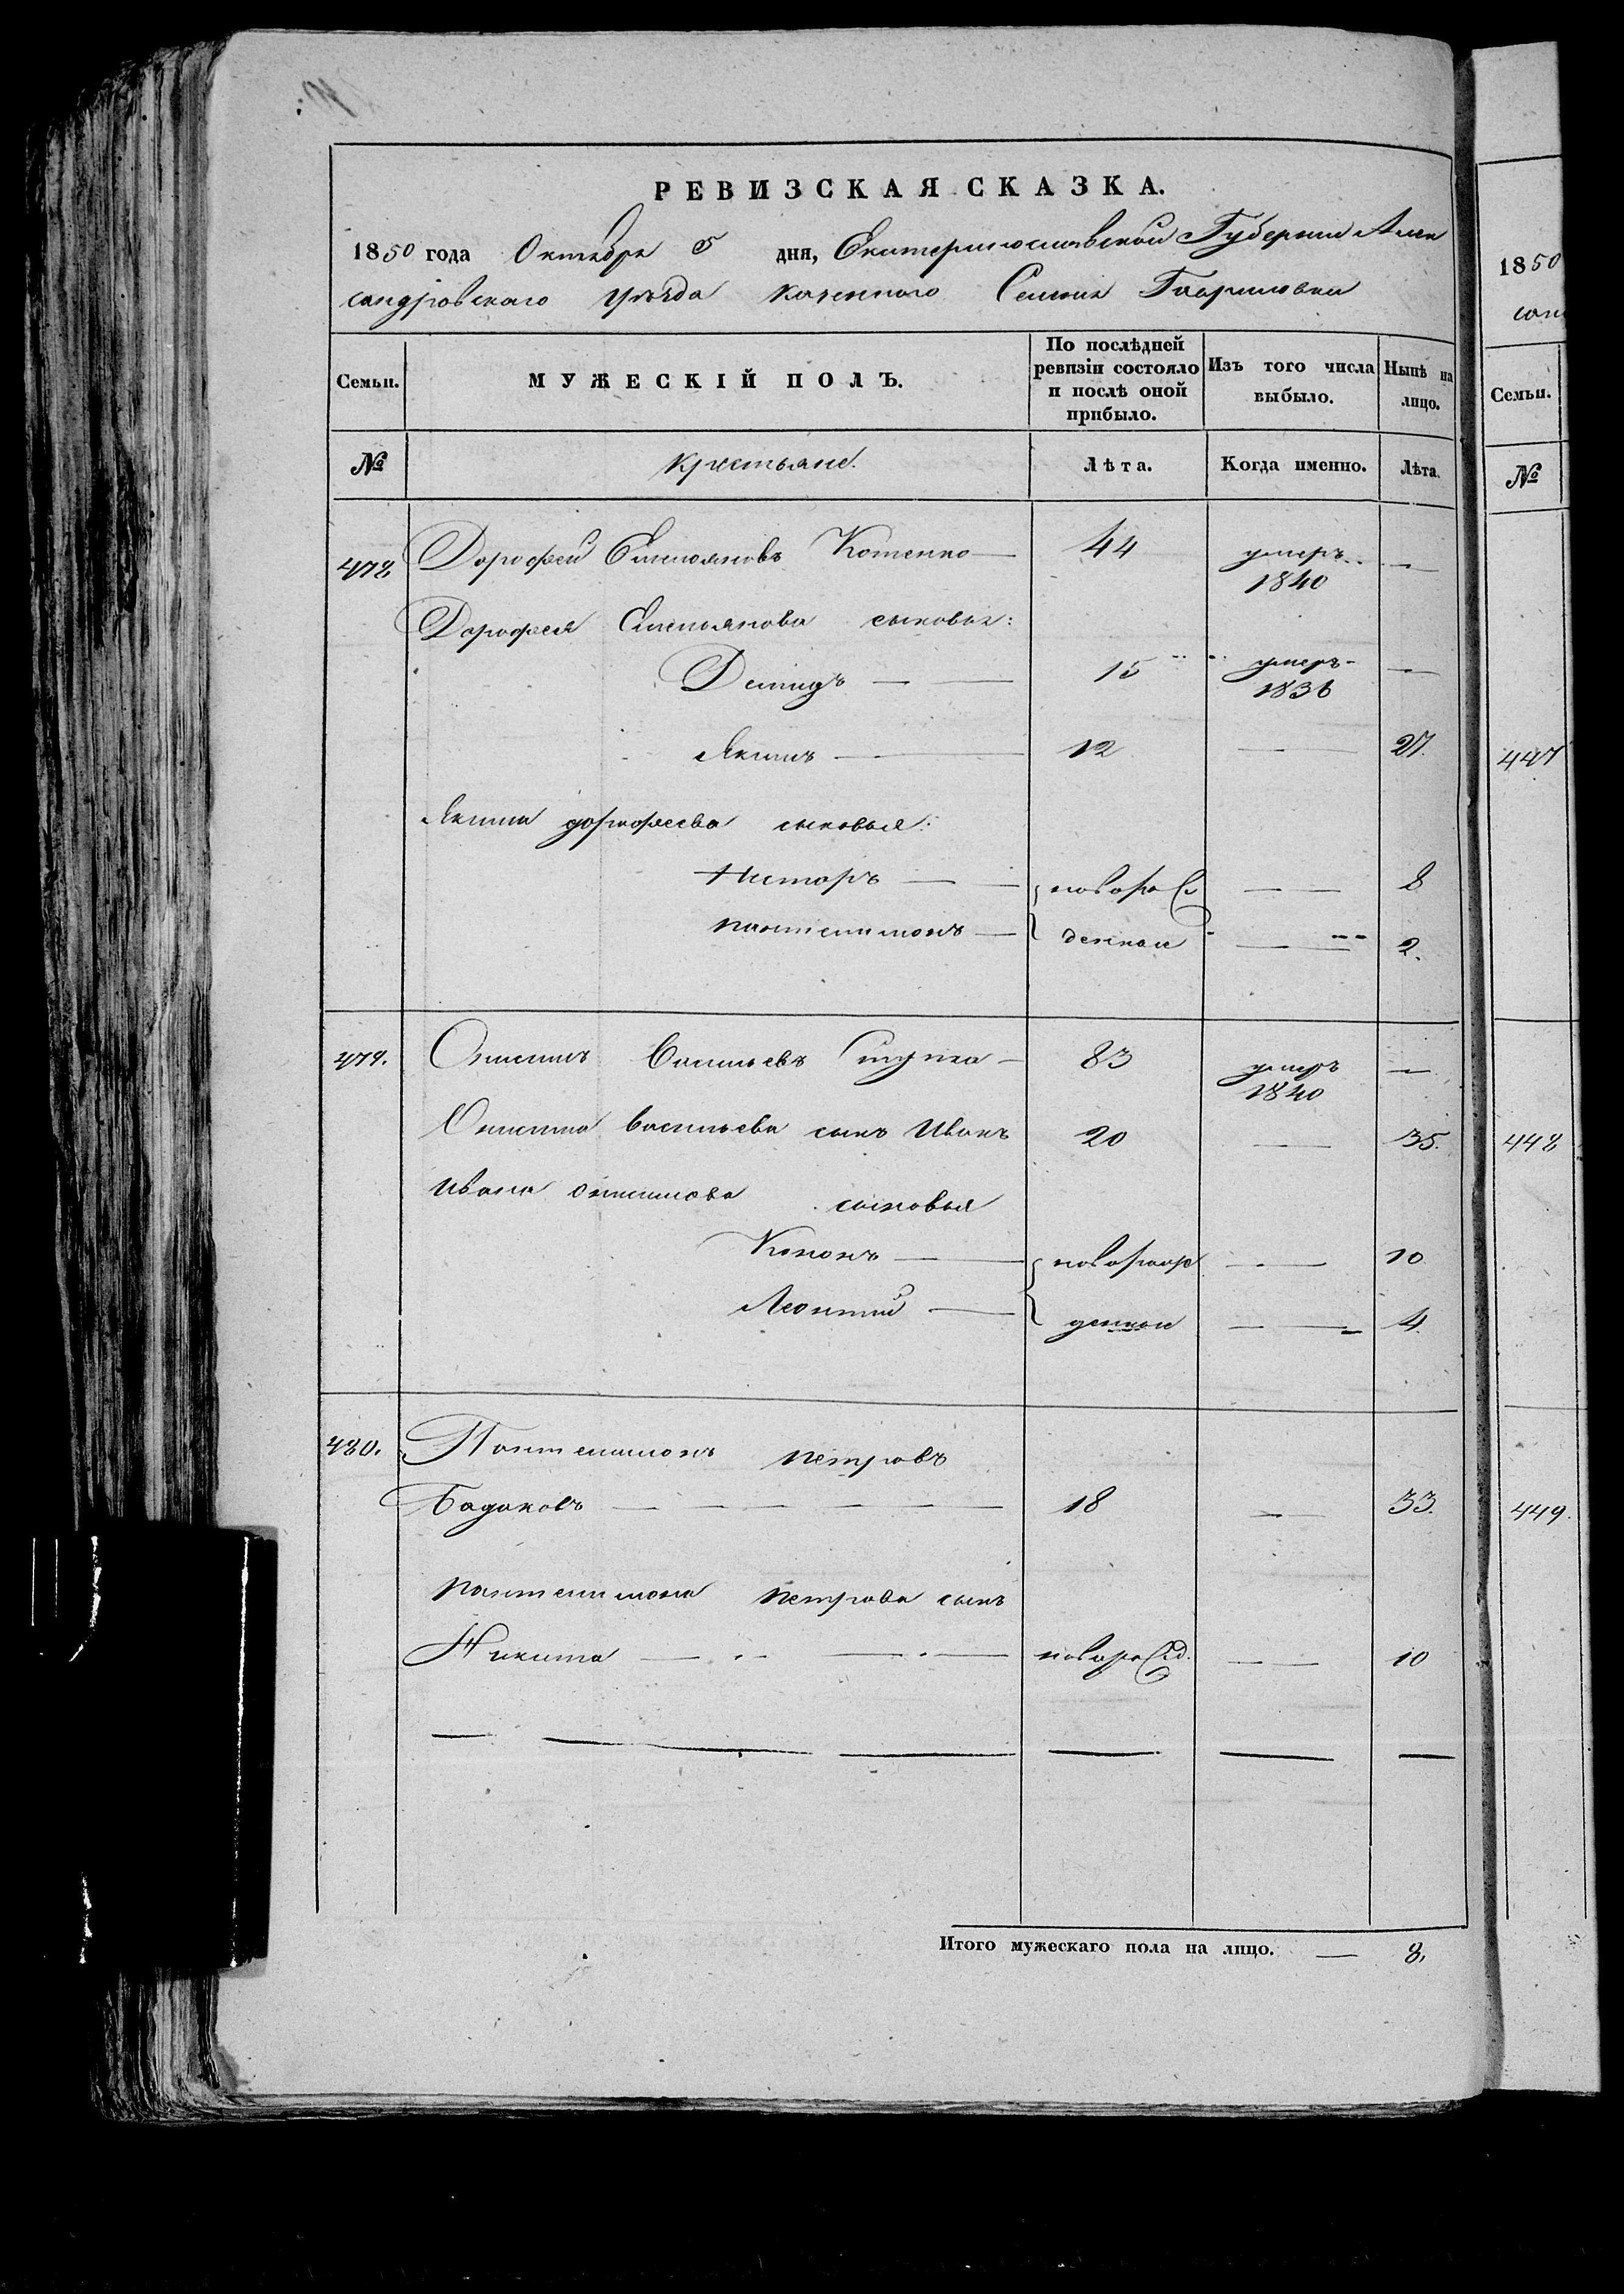 РЕВИЗСКАЯ СКАЗКА.
1850 года Октября 5 дня, Екатеринославской Губернии Алек
сандровскаго Уѣзда казеннаго Селенія Гавриловки
Семьи. МУЖЕСКІЙ ПОЛЪ. По послѣдней ревизіи состояло и послѣ оной прибыло. Изъ того числа выбыло. Нынѣ на лицо.
№ Крестьяне. Лѣта. Когда именно. Лѣта.
478 Дорофей Емельяновъ Котенко — 44 умеръ 1840 —
Дорофея Емельянова сыновья:
Демидъ — — 15 умеръ 1836 —
Якимъ — 12 — 27.
Якима дорофеева сыновья:
Нисторъ — — новорож — — 8
пантелимонъ — денные — — 2.
479. Онисимъ Васильевъ Ступка — 83 умеръ 1840 —
Онисима васильева сынъ Иванъ 20 — 35.
Ивана онисимова сыновья
Кононъ — новорож — — 10
Леонтий — денные — — 4.
480. Пантелимонъ петровъ
Бадаковъ — — — — — — 18 — 33.
пантелимона петрова сынъ
Никита — — — — новорожд. — — 10
Итого мужескаго пола на лицо. — 8.
1850
сан
Семьи.
№
447
448
449.